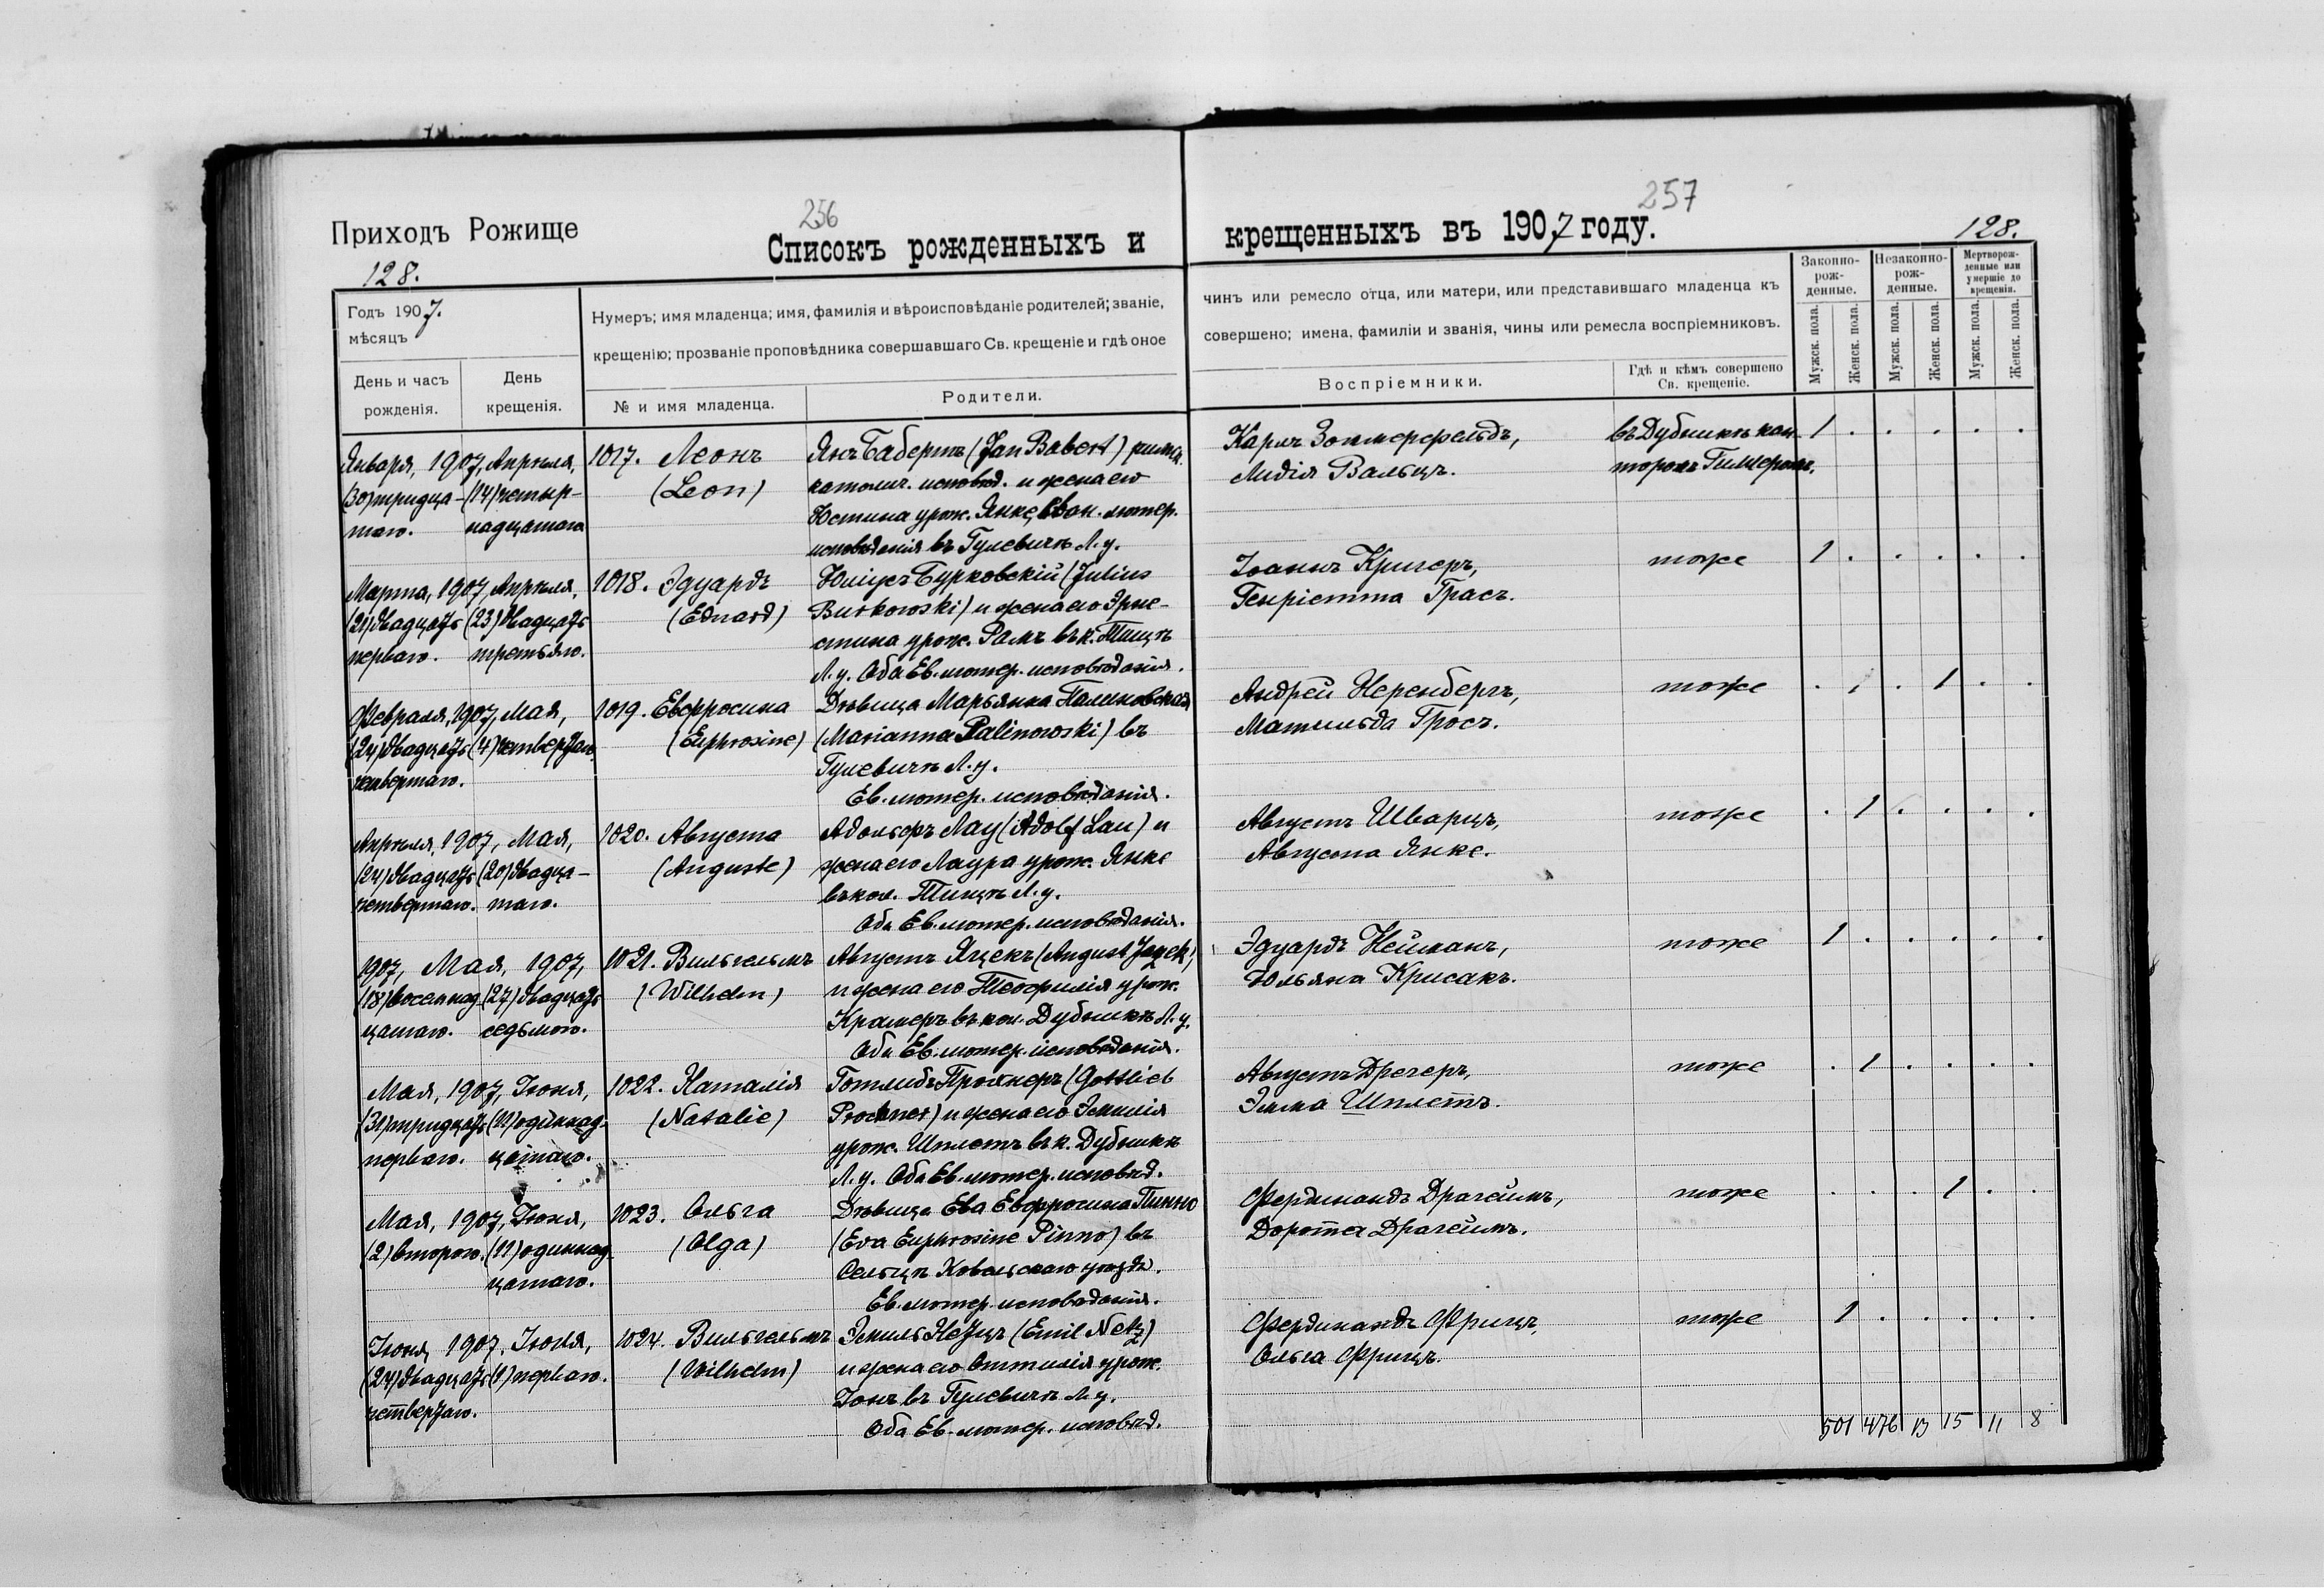 256
257
Приходъ Рожище
Списокъ рожденныхъ и
крещенныхъ въ 1907 году.
128.
128.
Годъ 1907.
мѣсяцъ
День и часъ
рожденія.
День
крещенія.
Нумеръ; имя младенца; имя, фамилія и вѣроисповѣданіе родителей; званіе,
крещенію; прозваніе проповѣдника совершавшаго Св. крещеніе и гдѣ оное
№ и имя младенца.
Родители.
чинъ или ремесло отца, или матери, или представившаго младенца къ
совершено; имена, фамиліи и званія, чины или ремесла воспріемниковъ.
Воспріемники.
Гдѣ и кѣмъ совершено
Св. крещеніе.
Законно-
рож-
денные.
Незаконно-
рож-
денные.
Мертворож-
денные или
умершіе до
крещенія.
Мужск. пола.
Женск. пола.
Мужск. пола.
Женск. пола
Мужск. пола.
Женск. пола.
Января, 1907, Апрѣля,
(30) тридца- (14) четыр-
таго. надцатаго
1017. Леонъ
(Leon)
Янъ Бабертъ (Jan Babert) римск.
католич. исповѣд. и жена его
Юстина урож. Янке, Еван. лютер.
исповѣданія въ Гулевичѣ Л. у.
Карлъ Зоммерфельдъ,
Лидія Вальцъ.
въ Дубникѣ кан-
торомъ
1 . . . . .
Марта, 1907, Апрѣля,
(21) двадцать (23) двадцать
перваго. третьяго.
1018. Эдуардъ
(Eduard)
Юліусъ Бурковскій (Julius
Burkowski) и жена его Эрне-
стина урож. Рамъ въ к. Тищѣ
Л. у. Оба Ев. лютер. исповѣданія.
Іоаннъ Кригеръ,
Генріетта Грасъ.
тоже
1 . . . . .
Февраля, 1907, Мая,
(24) двадцать (4) четвертаго.
четвертаго.
1019. Евфросина
(Euphrosine)
Дѣвица Марьянна Палиновская
(Marianna Palinowski) въ
Гулевичѣ Л. у.
Ев. лютер. исповѣданія.
Андрей Неренбергъ,
Матильда Гросъ.
тоже
. . . 1 . .
Апрѣля, 1907, Мая,
(24) двадцать (20) двадца-
четвертаго. таго.
1020. Августа
(Auguste)
Адольфъ Лау (Adolf Lau) и
жена его Лаура урож. Янке
въ кол. Тищѣ Л. у.
Оба Ев. лютер. исповѣданія.
Августъ Шварцъ,
Августа Янке.
тоже
. 1 . . . .
1907, Мая, 1907,
(18) восемнад (27) двадцать
цатаго. седьмого.
1021. Вильгельмъ
(Wilhelm)
Августъ Яцекъ (August Jazek)
и жена его Теофилія урож.
Крамеръ въ кол. Дубникѣ Л. у.
Оба Ев. лютер. исповѣданія.
Эдуардъ Нейманъ,
Юльяна Крисакъ.
тоже
1 . . . . .
Мая, 1907, Іюня,
(31) тридцать (11) одиннад-
перваго. цатаго.
1022. Наталія
(Natalie)
Готлибъ Прохнеръ (Gottlieb
Prochner) и жена его Эмилія
урож. Шплетъ въ к. Дубникѣ
Л. у. Оба Ев. лютер. исповѣд.
Августъ Дрегеръ,
Эмма Шплетъ.
тоже
. 1 . . . .
Мая, 1907, Іюня,
(2) второго. (11) одиннад-
цатаго.
1023. Ольга
(Olga)
Дѣвица Ева Евфросина Пинно
(Eva Euphrosine Pinno) въ
Сельцѣ Ковельскаго уѣзда.
Ев. лютер. исповѣданія.
Фердинандъ Драгеймъ,
Доротеа Драгеймъ.
тоже
. . . 1 . .
Іюня, 1907, Іюля,
(24) двадцать (1) перваго.
четвертаго.
1024. Вильгельмъ
(Wilhelm)
Эмиль Нетцъ (Emil Netz)
и жена его Оттилія урож.
Іонъ въ Гулевичѣ Л. у.
Оба Ев. лютер. исповѣд.
Фердинандъ Фрицъ,
Ольга Фрицъ.
тоже
1 . . . . .
501 476 13 15 11 8